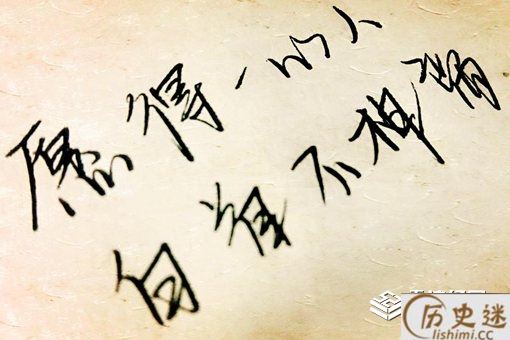 愿得一心人
白首不相离
历史迷
lishimi.cc